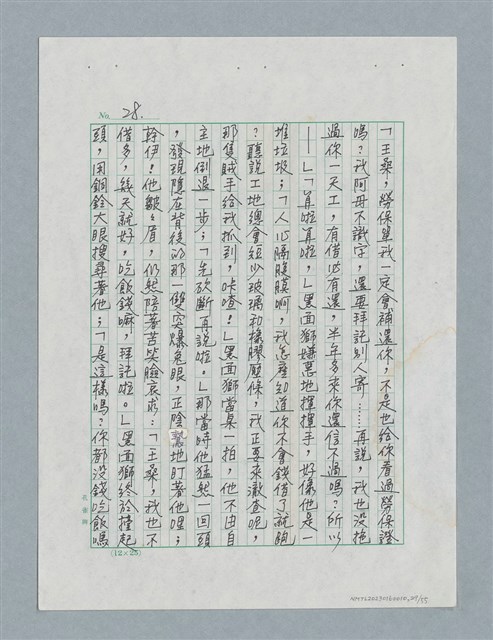 No. 28.
「王桑,勞保單我一定會補還你,不是也給你看過勞保證
嗎?我阿母不識字,還要拜託別人寄……再說,我也沒拖
過你一天工,有借必有還,半年多來你還信不過嗎?所以
——」「算啦算啦,」黑面獅嫌惡地揮揮手,好像他是一
堆垃圾;「人心隔肚膜啊,我怎麼知道你不會錢借了就跑
?聽說工地總會短少玻璃和橡膠壓條,我正要來澈查呢,
那隻賊手給我抓到,咔喳!」黑面獅當桌一拍,他不由自
主地倒退一步;「先砍斷再說啦。」那當時他猛然一回頭
,發現隱在背後的那一雙突爆兔眼,正陰鷙地盯著他哩;
幹伊!他皺皺眉,仍然陪著苦笑臉哀求:「王桑,我也不
借多,幾天就好,吃飯錢嘛,拜託啦。」黑面獅終於擡起
頭,用銅鈴大眼搜尋著他;「是這樣嗎?你都沒錢吃飯嗎
(12×25)